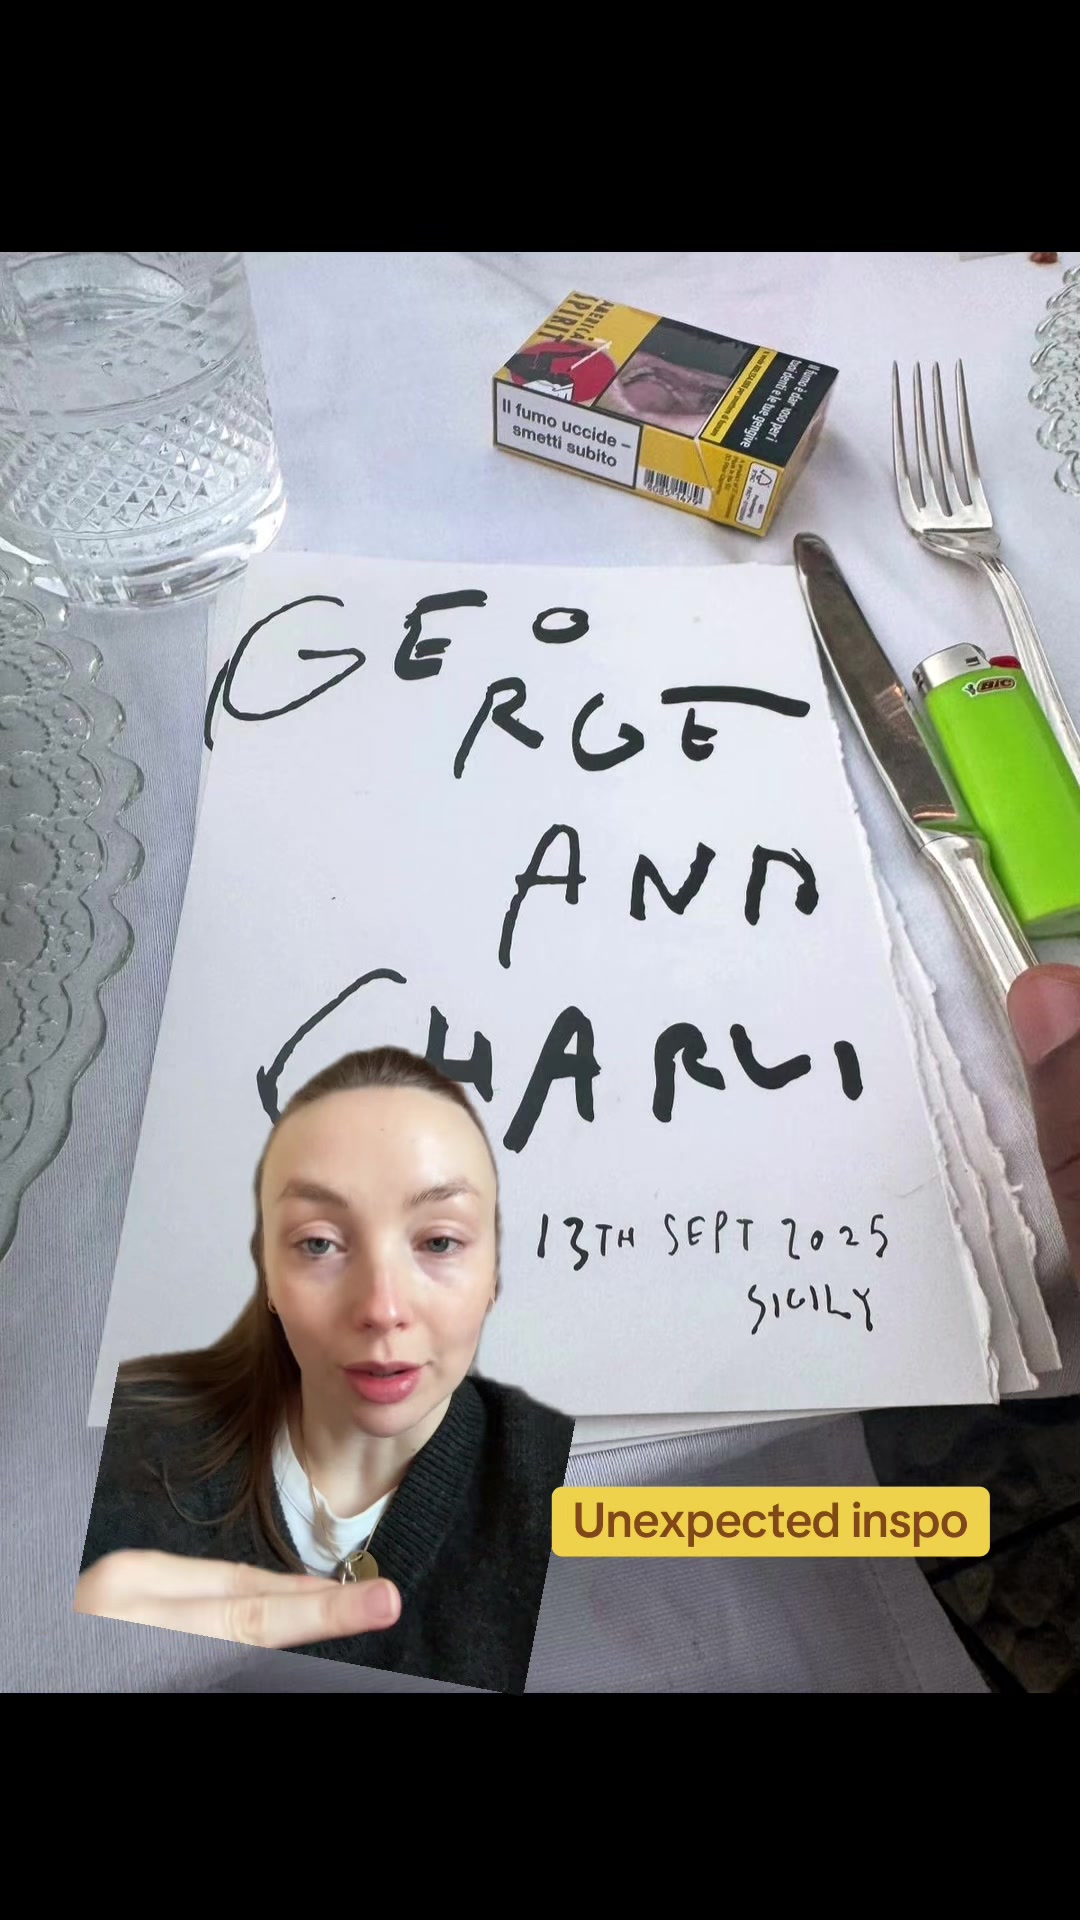 AMERICA
SPIRIT
Il fumo uccide –
smetti subito
Il fumo è dannoso per i
tuoi denti e le tue gengive
BIC
GEO
RGE
AND
CHARLI
13TH SEPT 2025
SICILY
Unexpected inspo